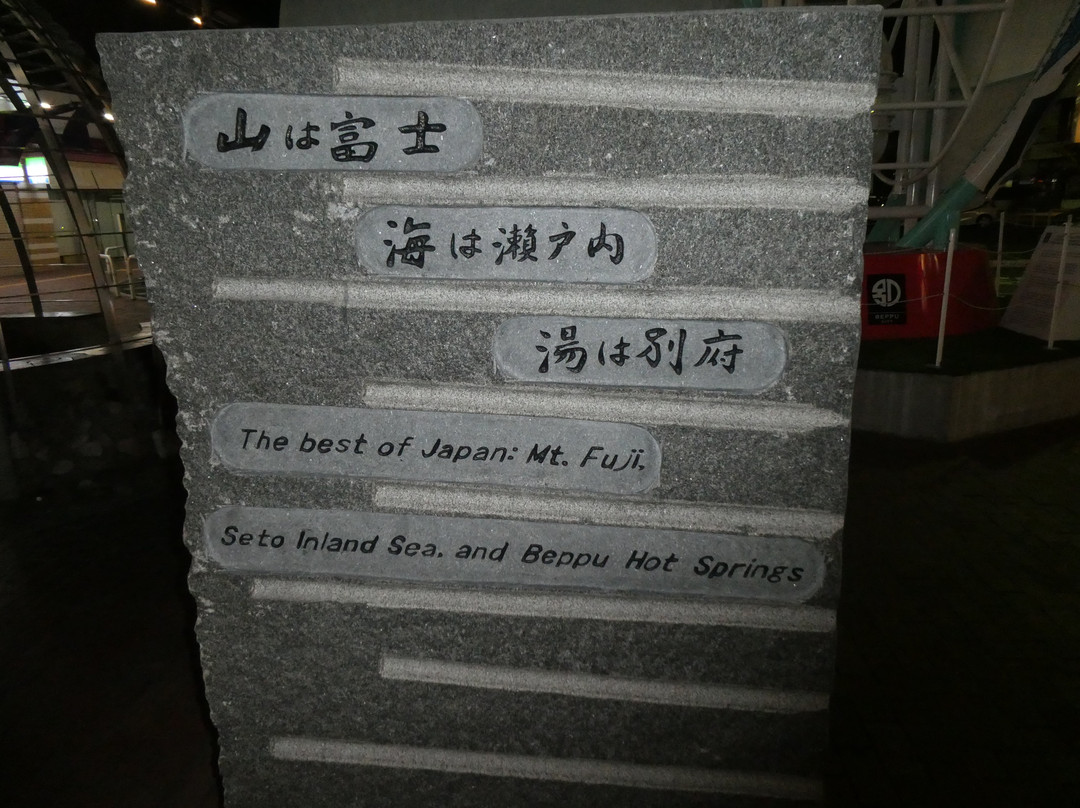 山は富士
海は瀬戸内
湯は別府
The best of Japan: Mt. Fuji,
Seto Inland Sea, and Beppu Hot Springs
BEPPU